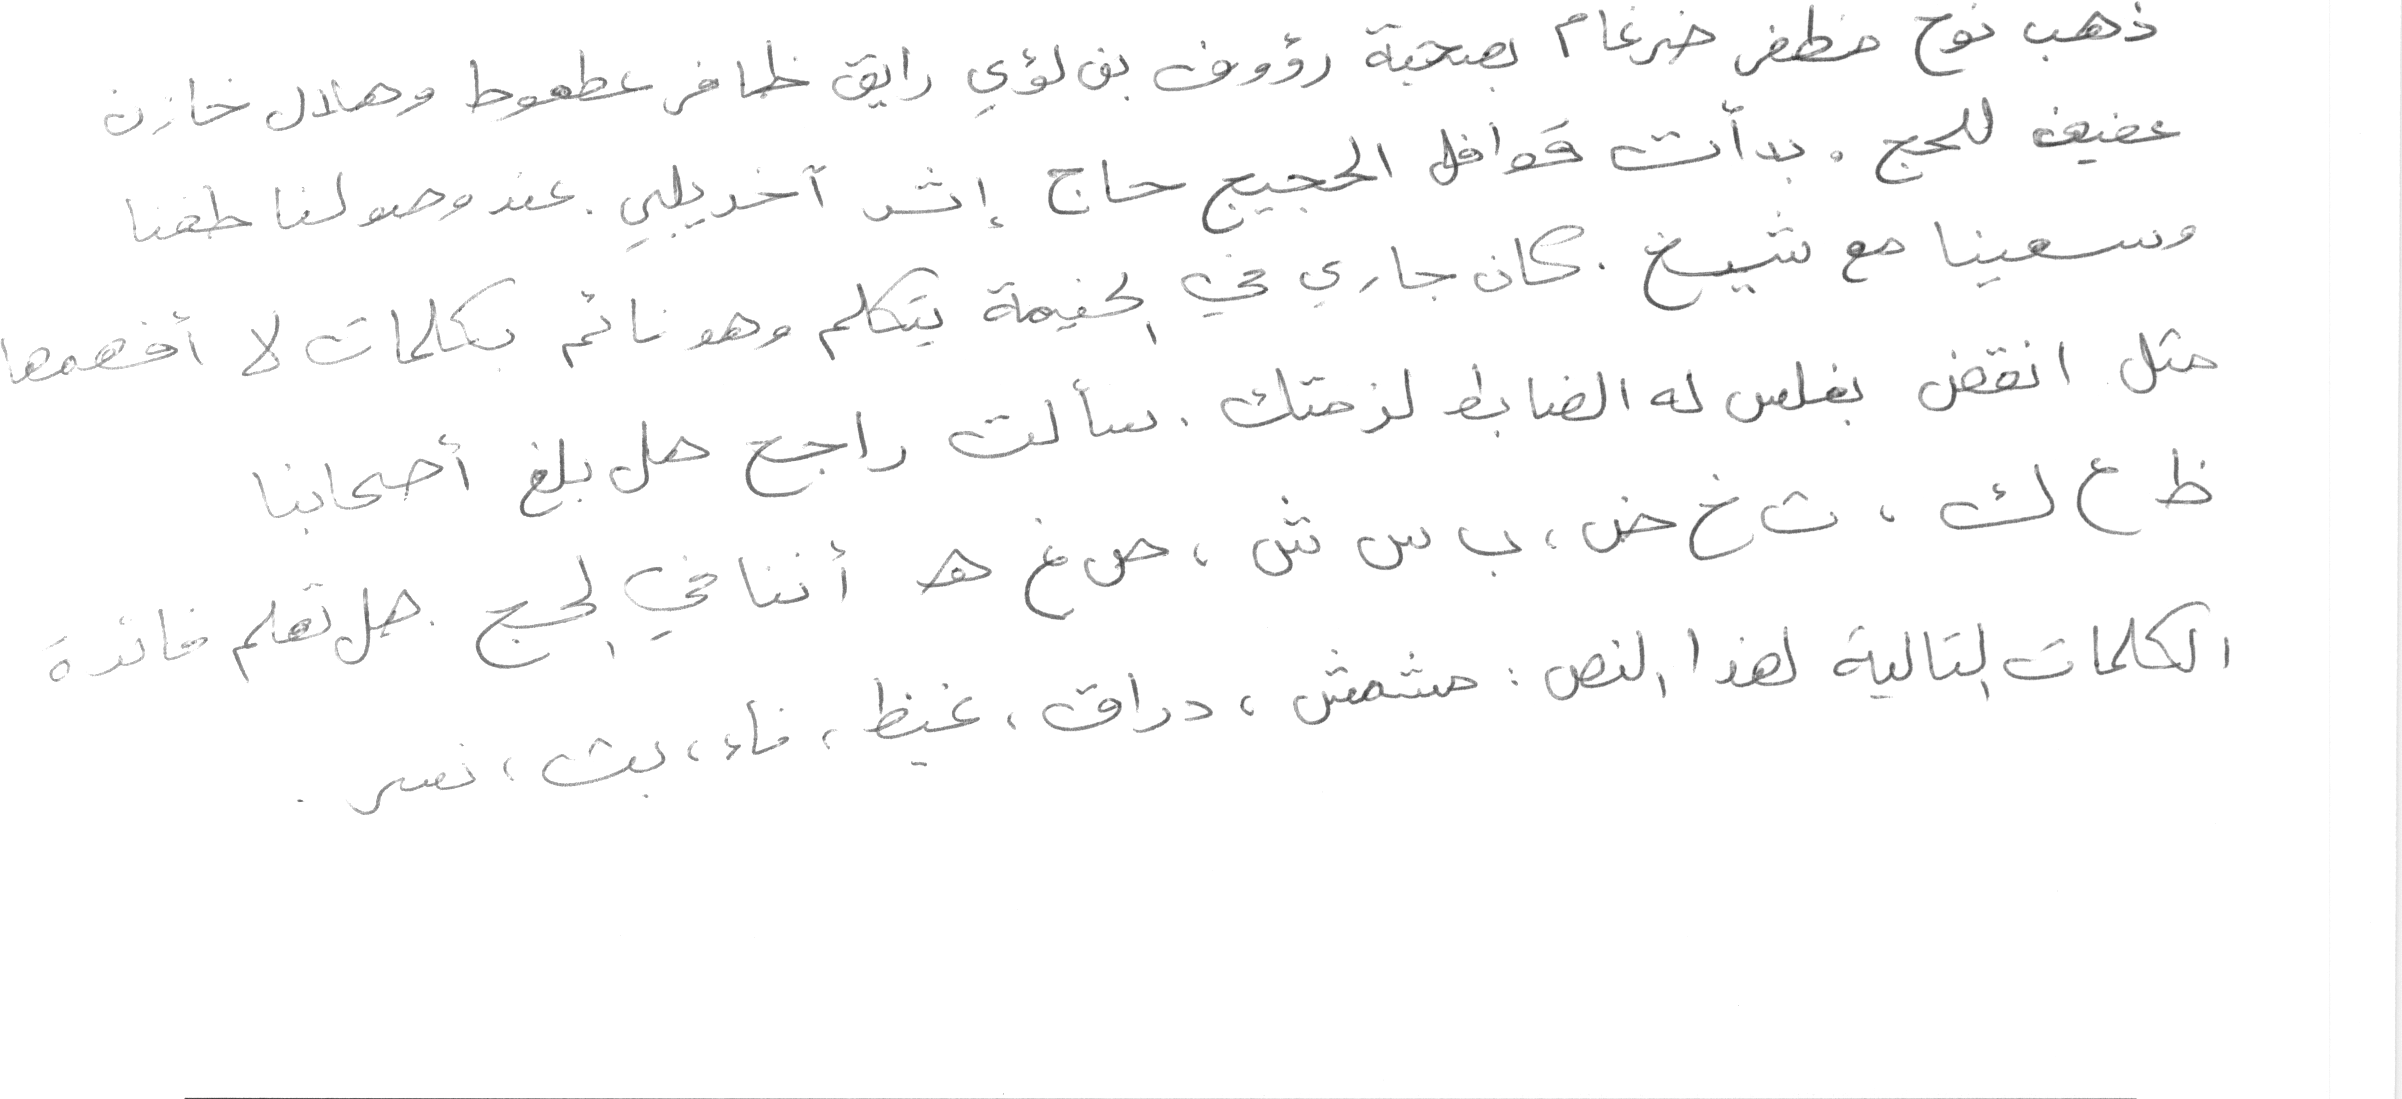 ذهب نوح مظفر ضرغام بصحبة رؤوف بن لؤي رايق ظافر عطعوط وهلال خازن
عفيف للحج . بدأت قوافل الحجيج حاج إثر آخر يلبي . عند وصولنا طفنا
وسعينا مع شيخ . كان جاري في الخيمة يتكلم وهو نائم بكلمات لا أفهمها
مثل انقض بغلس له الضابط لزمتك . سألت راجح هل بلغ أصحابنا
ظ ع ك ، ث خ ض ، ب س ش ، ص غ هـ أننا في الحج . هل تعلم فائدة
الكلمات التالية لهذا النص : مشمش ، دراق ، غيظ ، فاء ، بث ، نسر .